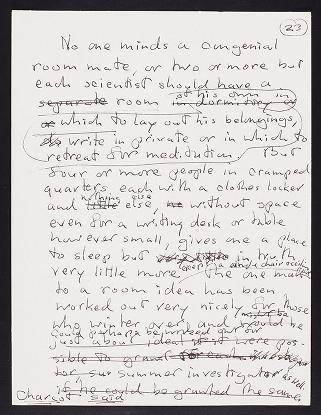 23
No one minds a congenial
room mate, or two or more but
each scientist should have a
separate room of his own in
in dormitory or
or which to lay out his belongings,
to write in private or in which to
retreat for meditation. But
four or more people in cramped
quarters, each with a clothes locker
and little nothing else, without space
even for a writing desk or table
however small, gives one a place
to sleep but in truth
very little more. The one man
to a room idea has been
worked out very nicely for those
who winter over, and would be
could perhaps be worked out for
just about ideal if it were pos-
sible to grant for each
for summer investigators as well.
if he could be granted the same.
Charcot said